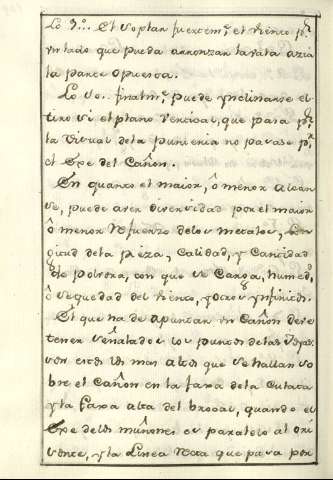 Lo 9.º El soplar fuertem.te el viento p.r
un lado que pueda arronzar la vala azia
la parte opuesta.
Lo 10. finalm.te puede ynclinarse el
tiro si el plano vertical, que pasa p.r
la visual de la punteria no pasase p.r
el exe del Cañon.
En quanto el maior, ô menor alcan
se, puede aver diversidad por el maior
ô menor refuerzo de los metales, lon
gitud de la pieza, calidad, y cantidad
de polvora, con que se carga, humed.d
ô sequedad del viento, y otros ynfinitos.
El que ha de apuntar un Cañon deve
tener señalados los puntos de las
son estos los mas altos que se hallan so
bre el Cañon en la faxa de la Culata
y la faxa alta del brocal, quando el
exe de los muñones es paralelo al ori
zonte, y la linea recta que pasa por